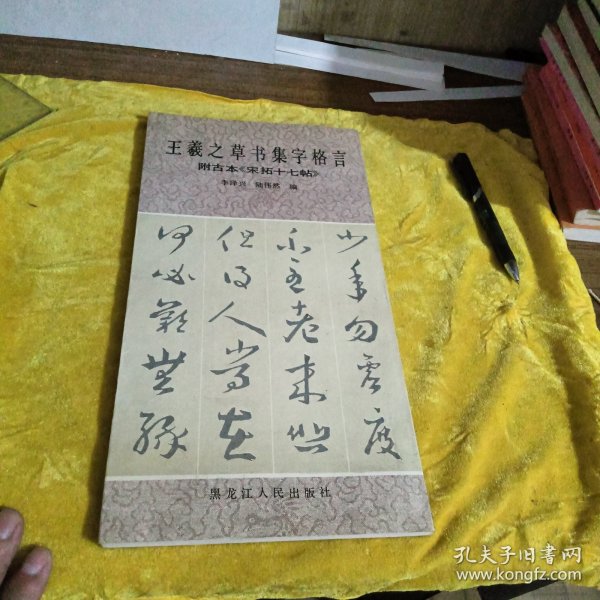 王羲之草书集字格言
附古本《宋拓十七帖》
李泽兴 陆伟然 编
少年勿虚度
不至老来
但得人常在
何必叹无缘
黑龙江人民出版社
孔夫子旧书网
www.kongfz.com